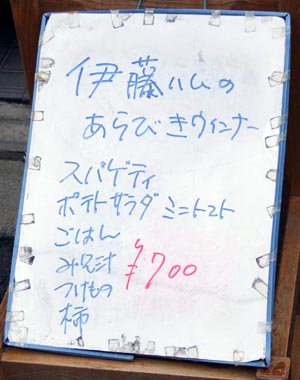 伊藤ハムの
あらびきウィンナー
スパゲティ
ポテトサラダ ミニトマト
ごはん
み兄汁
つけもの
柿
¥700